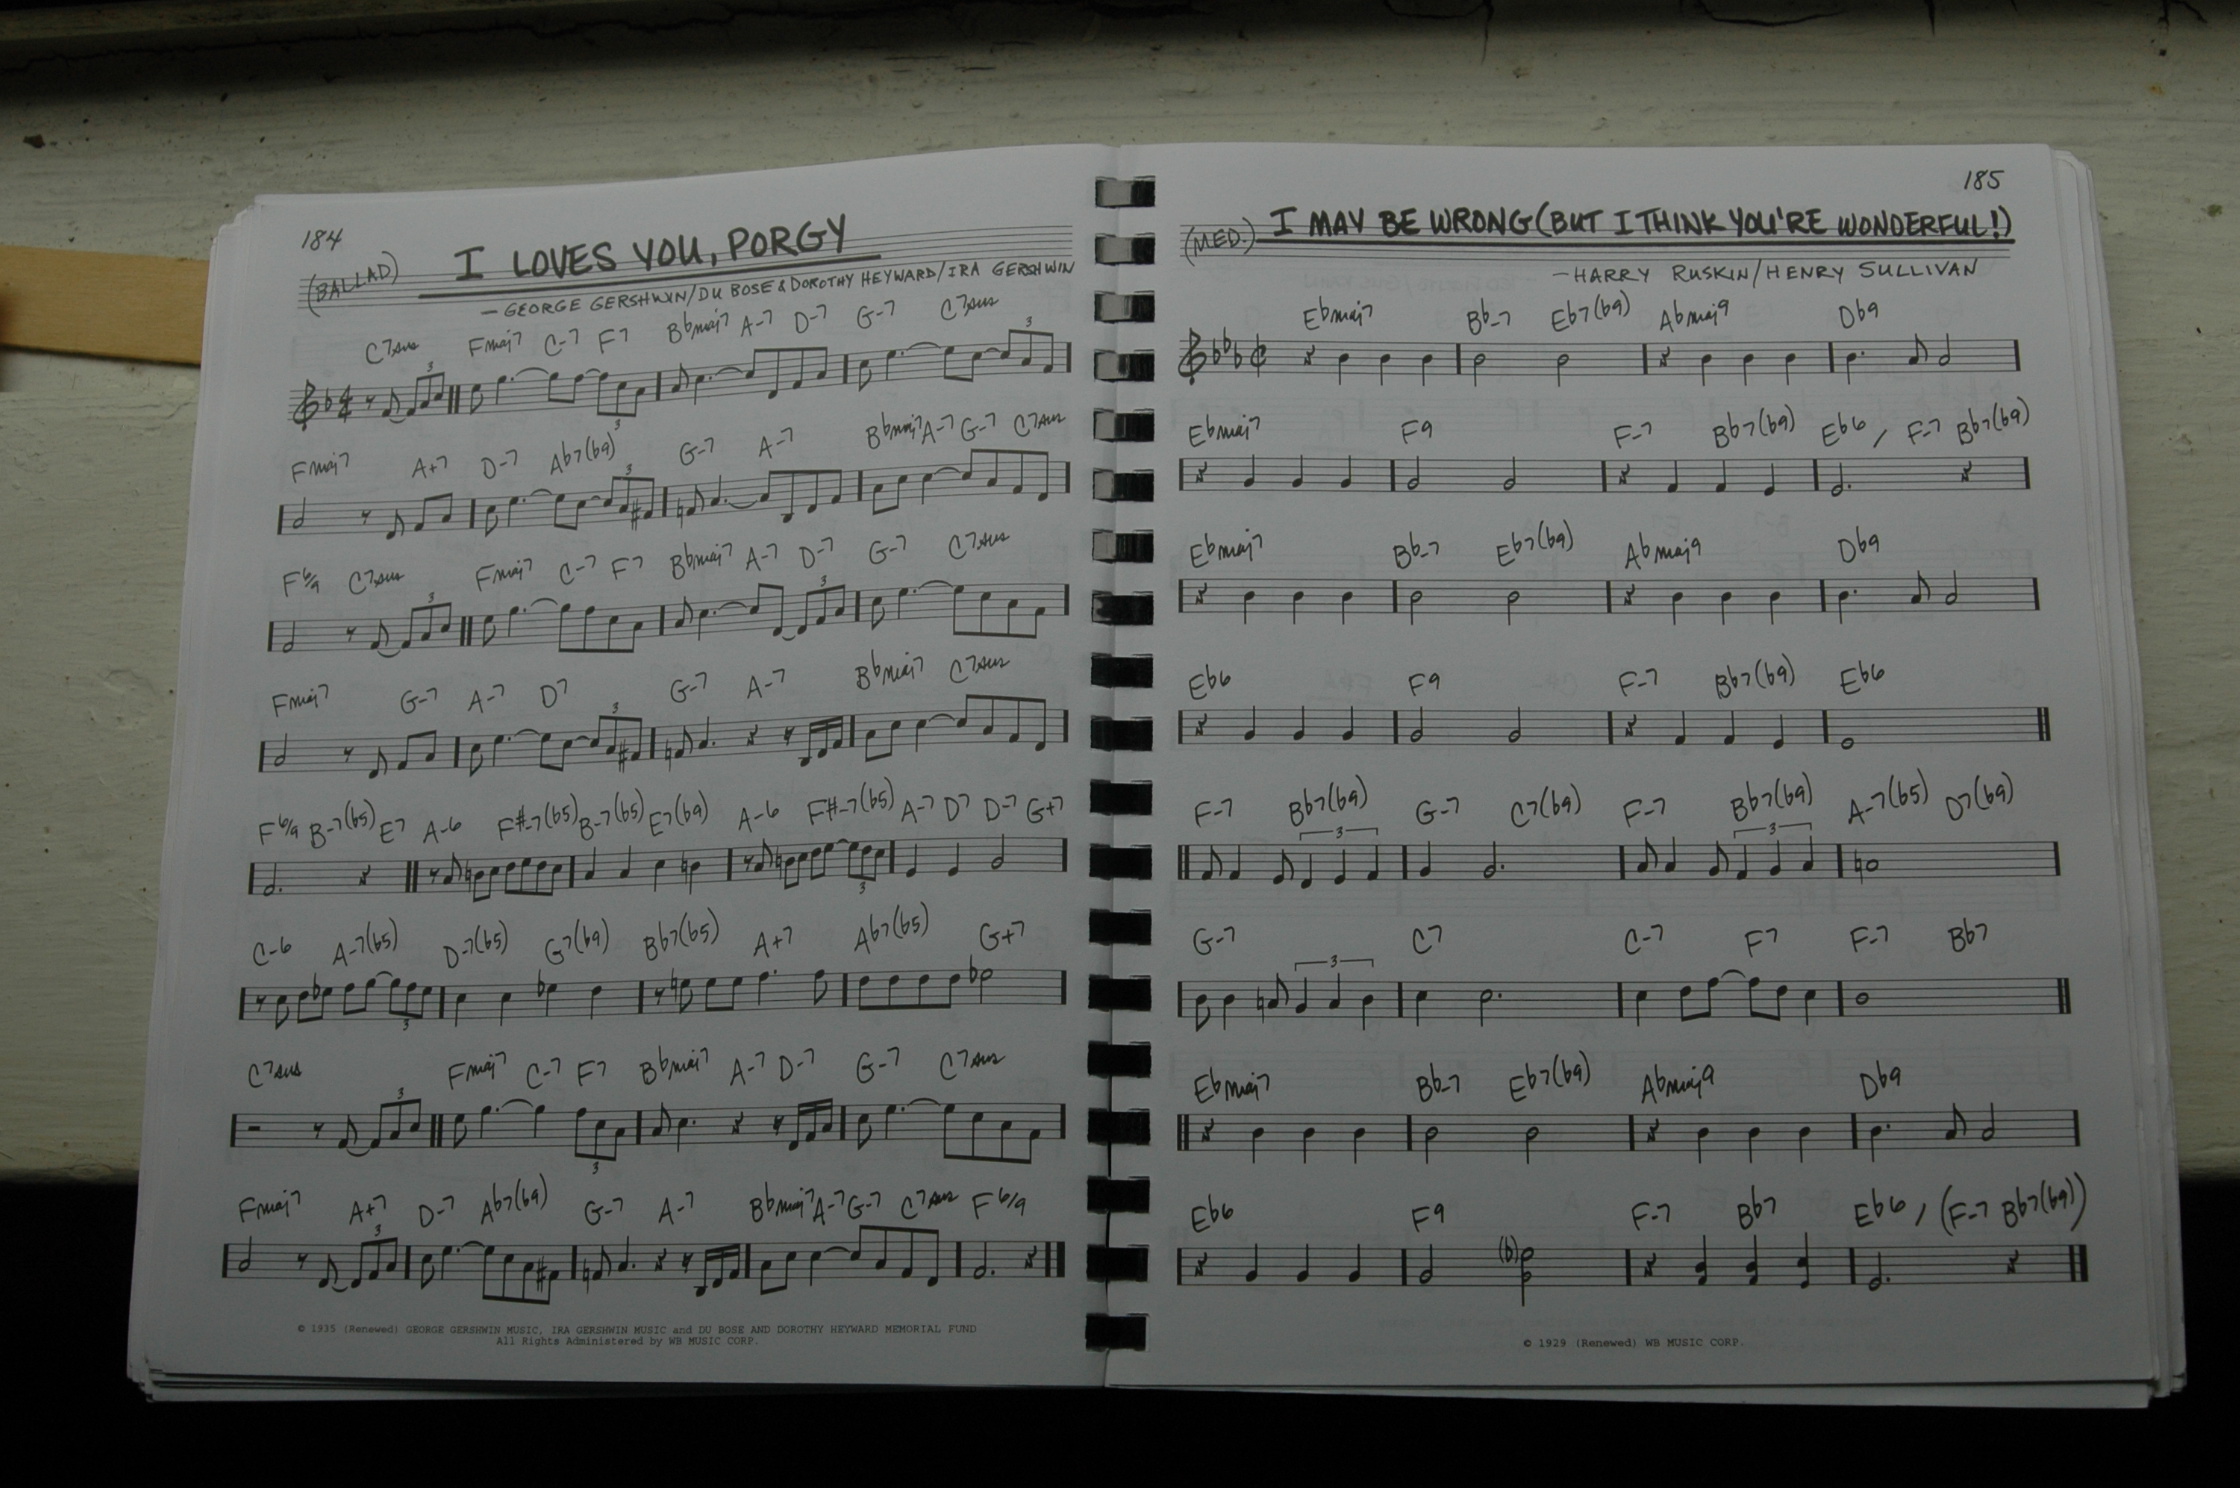 184
(BALLAD) I LOVES YOU, PORGY
— GEORGE GERSHWIN/DU BOSE & DOROTHY HEYWARD/IRA GERSHWIN
C7sus Fmaj7 C-7 F7 Bbmaj7 A-7 D-7 G-7 C7sus
3 3
3
Fmaj7 A+7 D-7 Ab7(b9) G-7 A-7 Bbmaj7 A-7 G-7 C7sus
3
F6/9 C7sus Fmaj7 C-7 F7 Bbmaj7 A-7 D-7 G-7 C7sus
3 3
Fmaj7 G-7 A-7 D7 G-7 A-7 Bbmaj7 C7sus
3
F6/9 B-7(b5) E7 A-6 F#-7(b5) B-7(b5) E7(b9) A-6 F#-7(b5) A-7 D7 D-7 G+7
3
C-6 A-7(b5) D-7(b5) G7(b9) Bb7(b5) A+7 Ab7(b5) G+7
3
C7sus Fmaj7 C-7 F7 Bbmaj7 A-7 D-7 G-7 C7sus
3
3
Fmaj7 A+7 D-7 Ab7(b9) G-7 A-7 Bbmaj7 A-7 G-7 C7sus F6/9
3
© 1935 (Renewed) GEORGE GERSHWIN MUSIC, IRA GERSHWIN MUSIC and DU BOSE AND DOROTHY HEYWARD MEMORIAL FUND
All Rights Administered by WB MUSIC CORP.
185
(MED.) I MAY BE WRONG (BUT I THINK YOU'RE WONDERFUL!)
— HARRY RUSKIN/HENRY SULLIVAN
Ebmaj7 Bb-7 Eb7(b9) Abmaj9 Db9
Ebmaj7 F9 F-7 Bb7(b9) Eb6 / F-7 Bb7(b9)
Ebmaj7 Bb-7 Eb7(b9) Abmaj9 Db9
Eb6 F9 F-7 Bb7(b9) Eb6
F-7 Bb7(b9) G-7 C7(b9) F-7 Bb7(b9) A-7(b5) D7(b9)
3 3
G-7 C7 C-7 F7 F-7 Bb7
3
Ebmaj7 Bb-7 Eb7(b9) Abmaj9 Db9
Eb6 F9 F-7 Bb7 Eb6 / (F-7 Bb7(b9))
(b)
© 1929 (Renewed) WB MUSIC CORP.